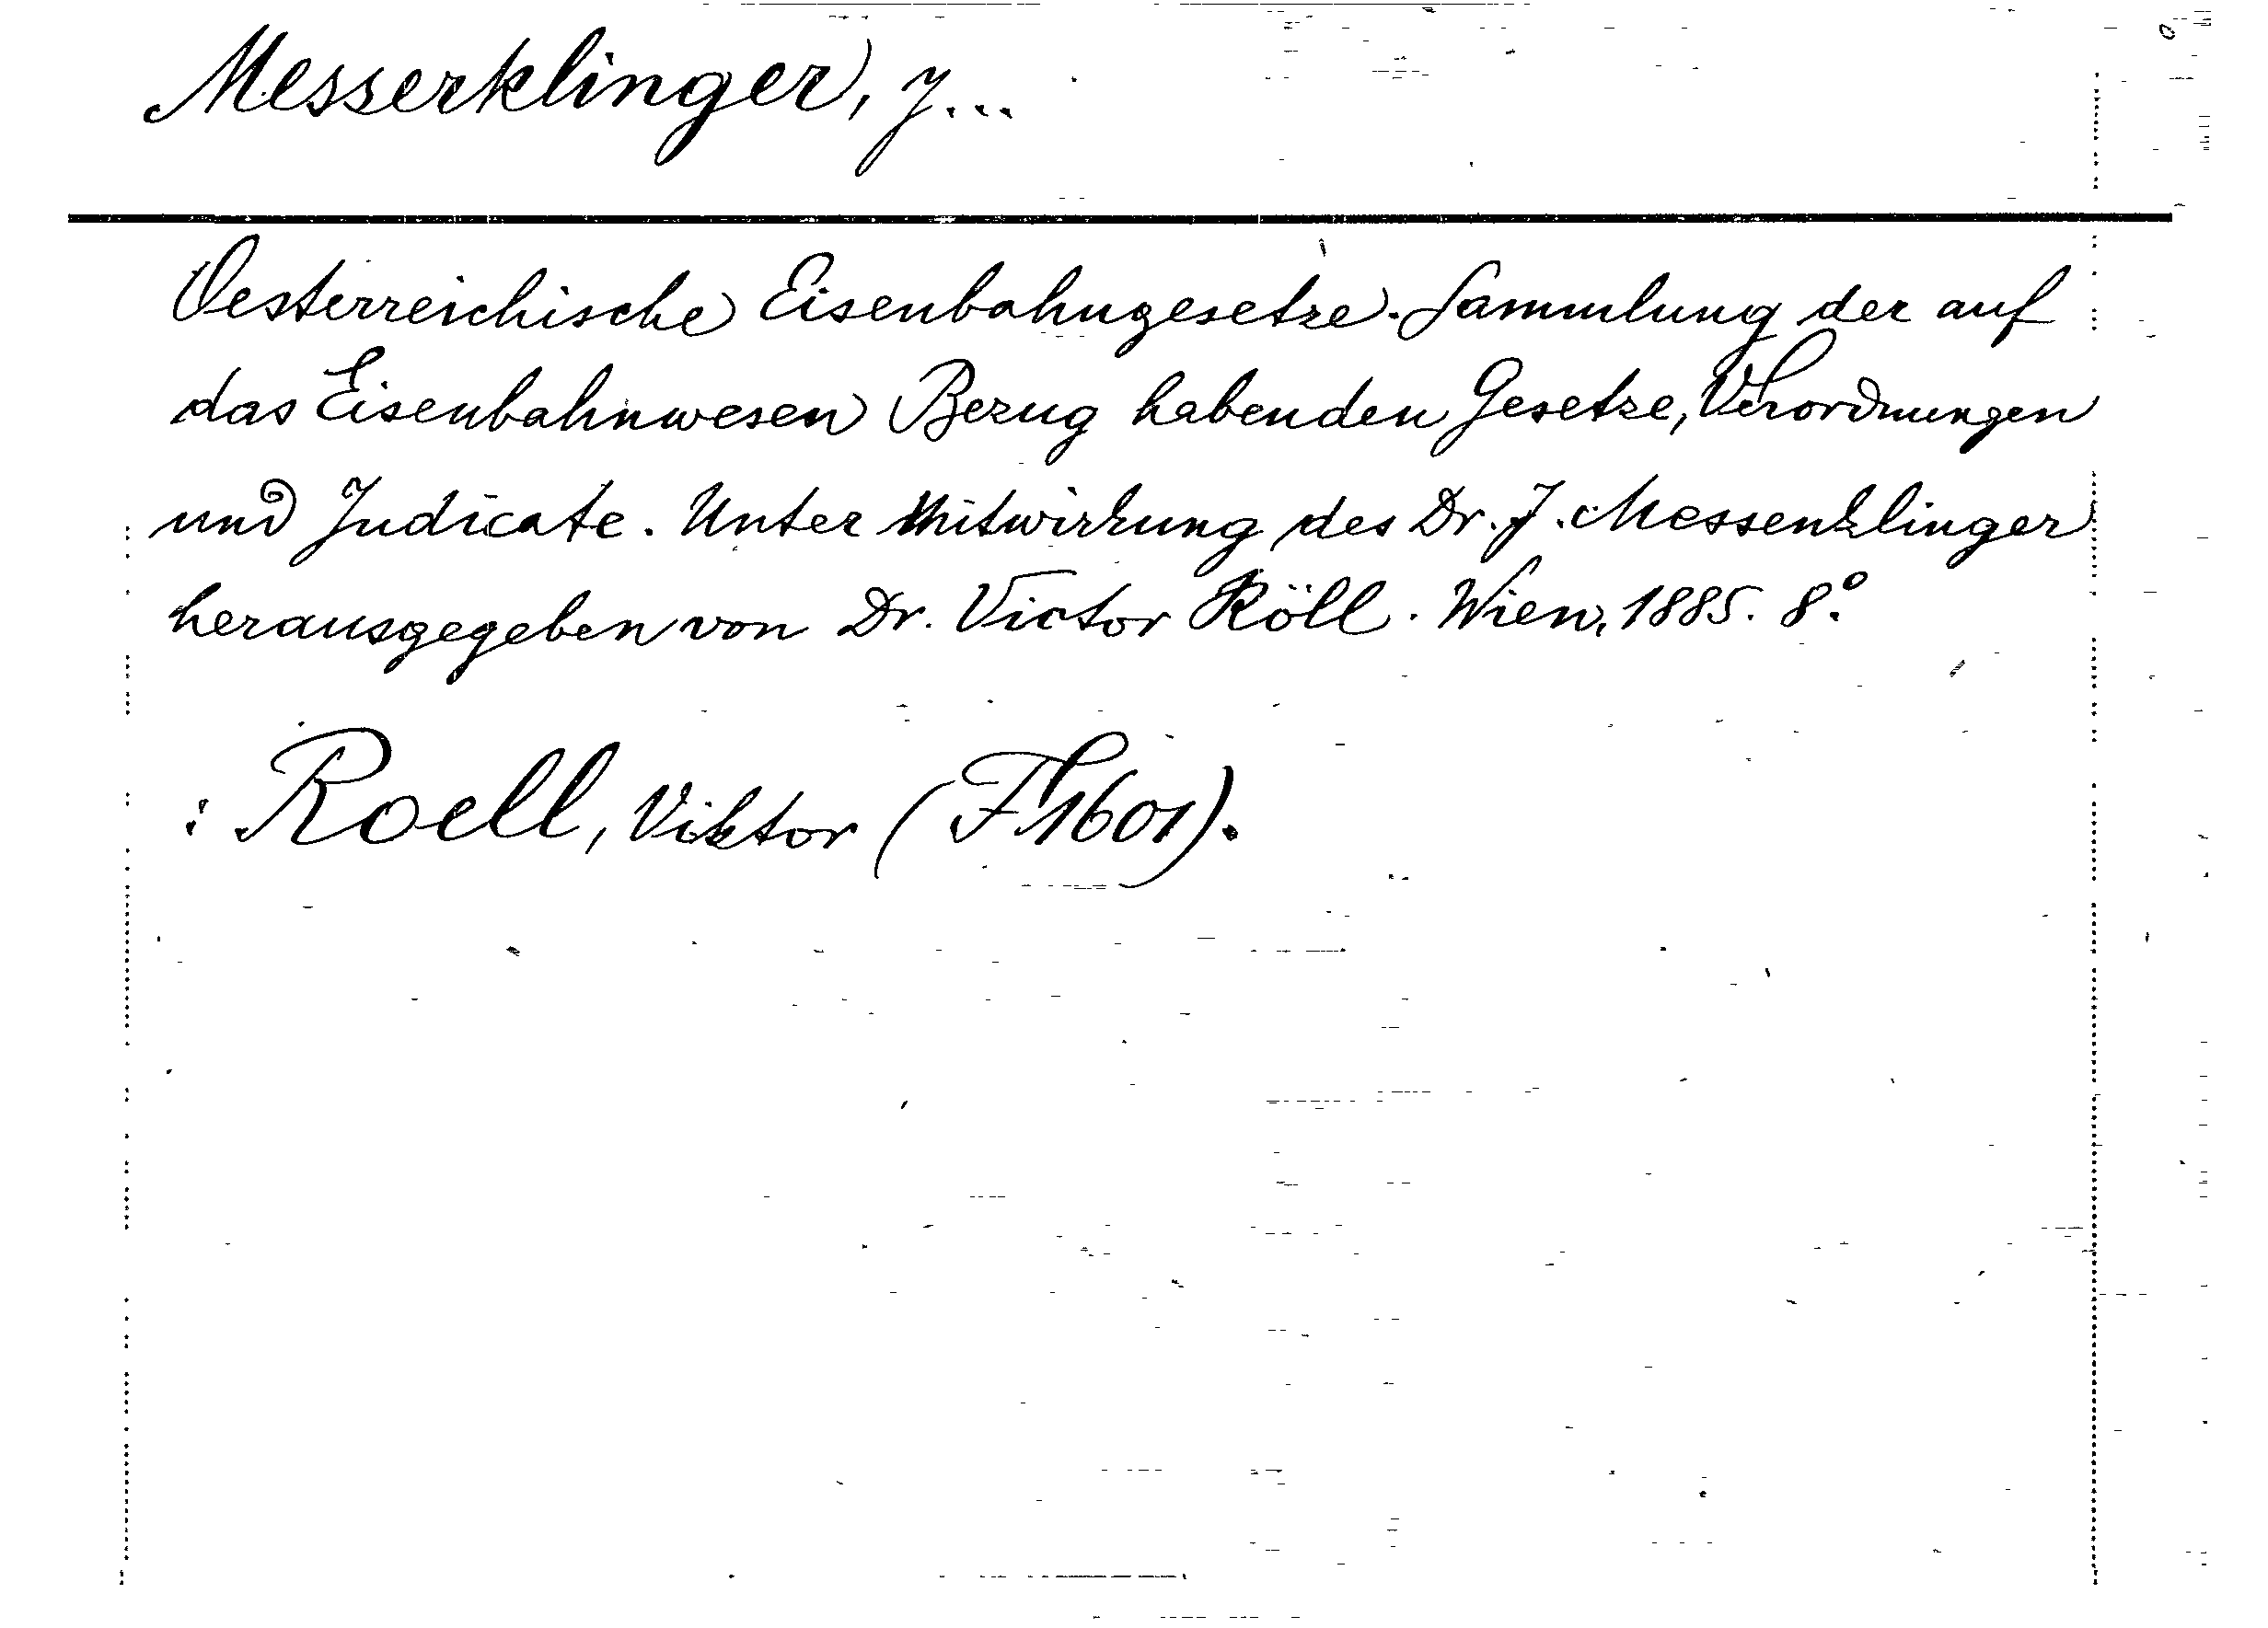 Messerklinger, J...
Oesterreichische Eisenbahngesetze. Sammlung der auf
das Eisenbahnwesen Bezug habenden Gesetze, Verordnungen
und Judicate. Unter Mitwirkung des Dr. J. Messenklinger
herausgegeben von Dr. Victor Röll. Wien, 1885. 8°.
: Roell, Viktor (F 1601).